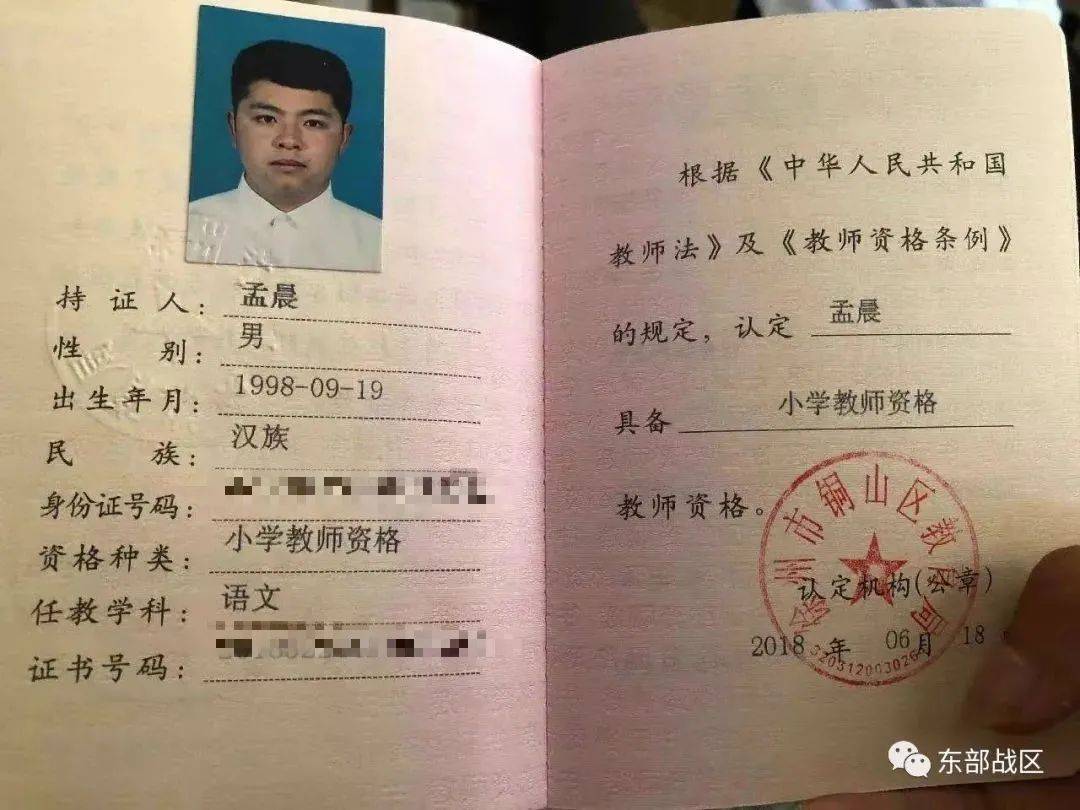 持证人：孟晨
性别：男
出生年月：1998-09-19
民族：汉族
身份证号码：
资格种类：小学教师资格
任教学科：语文
证书号码：
根据《中华人民共和国
教师法》及《教师资格条例》
的规定，认定 孟晨
具备 小学教师资格
教师资格。
徐州市铜山区教育局
认定机构(公章)
2018 年 06月 18
东部战区